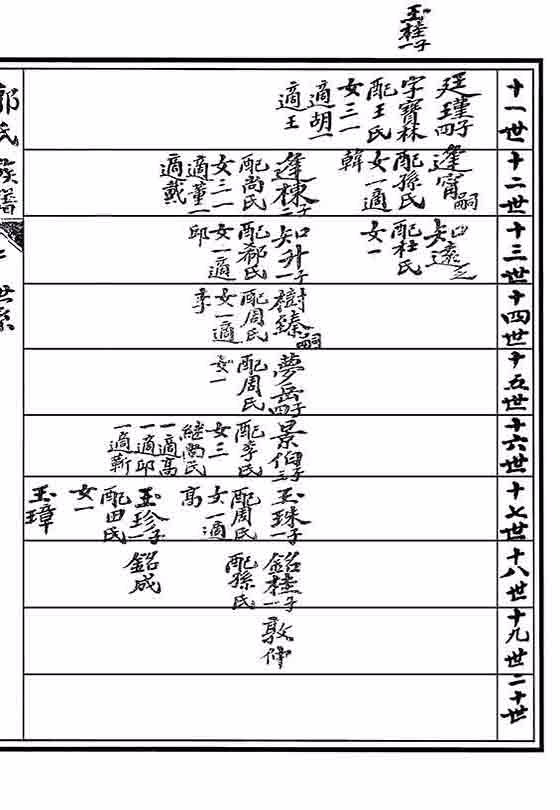 玉桂一子
郭氏族譜
世系
十一世
廷瑾四子
字寶林
配王氏
女三一
適胡一
適王
十二世
逢甯嗣
配孫氏
女一適
韓
逢棟二子
配尚氏
女三一
適董一
適戴
十三世
知遠
配杜氏
女一
知升一子
配郗氏
女一適
邱
十四世
樹臻嗣
配周氏
女一適
李
十五世
夢岳四子
配周氏
女一
十六世
景伯三子
配李氏
女三
繼尚氏
一適高
一適邱
一適蘄
十七世
玉珠一子
配周氏
女一適
高
玉珍一子
配田氏
女一
玉璋
十八世
銘桂一子
配孫氏
銘成
十九世
敦仲
二十世